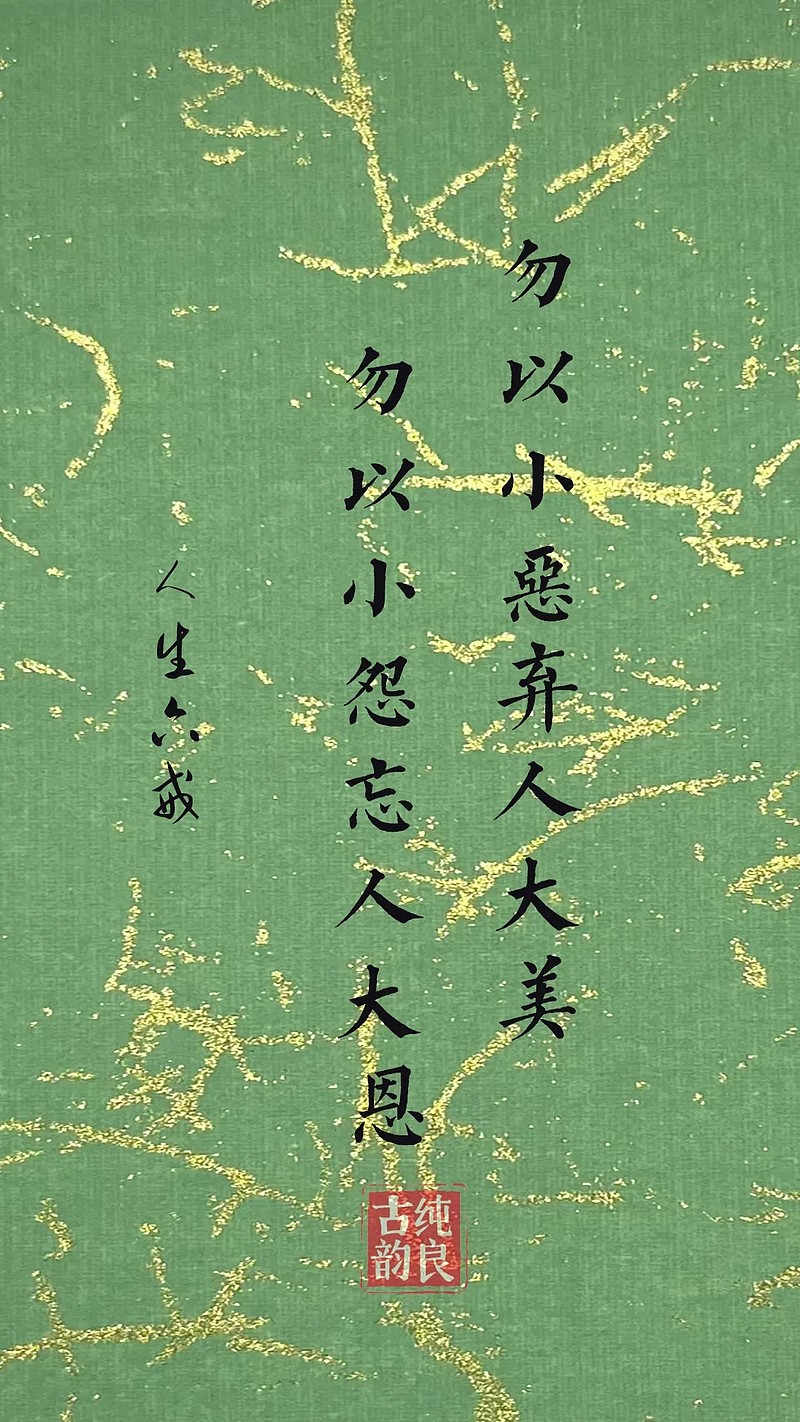 勿以小惡弃人大美
勿以小怨忘人大恩
人生六戒
纯良
古韵